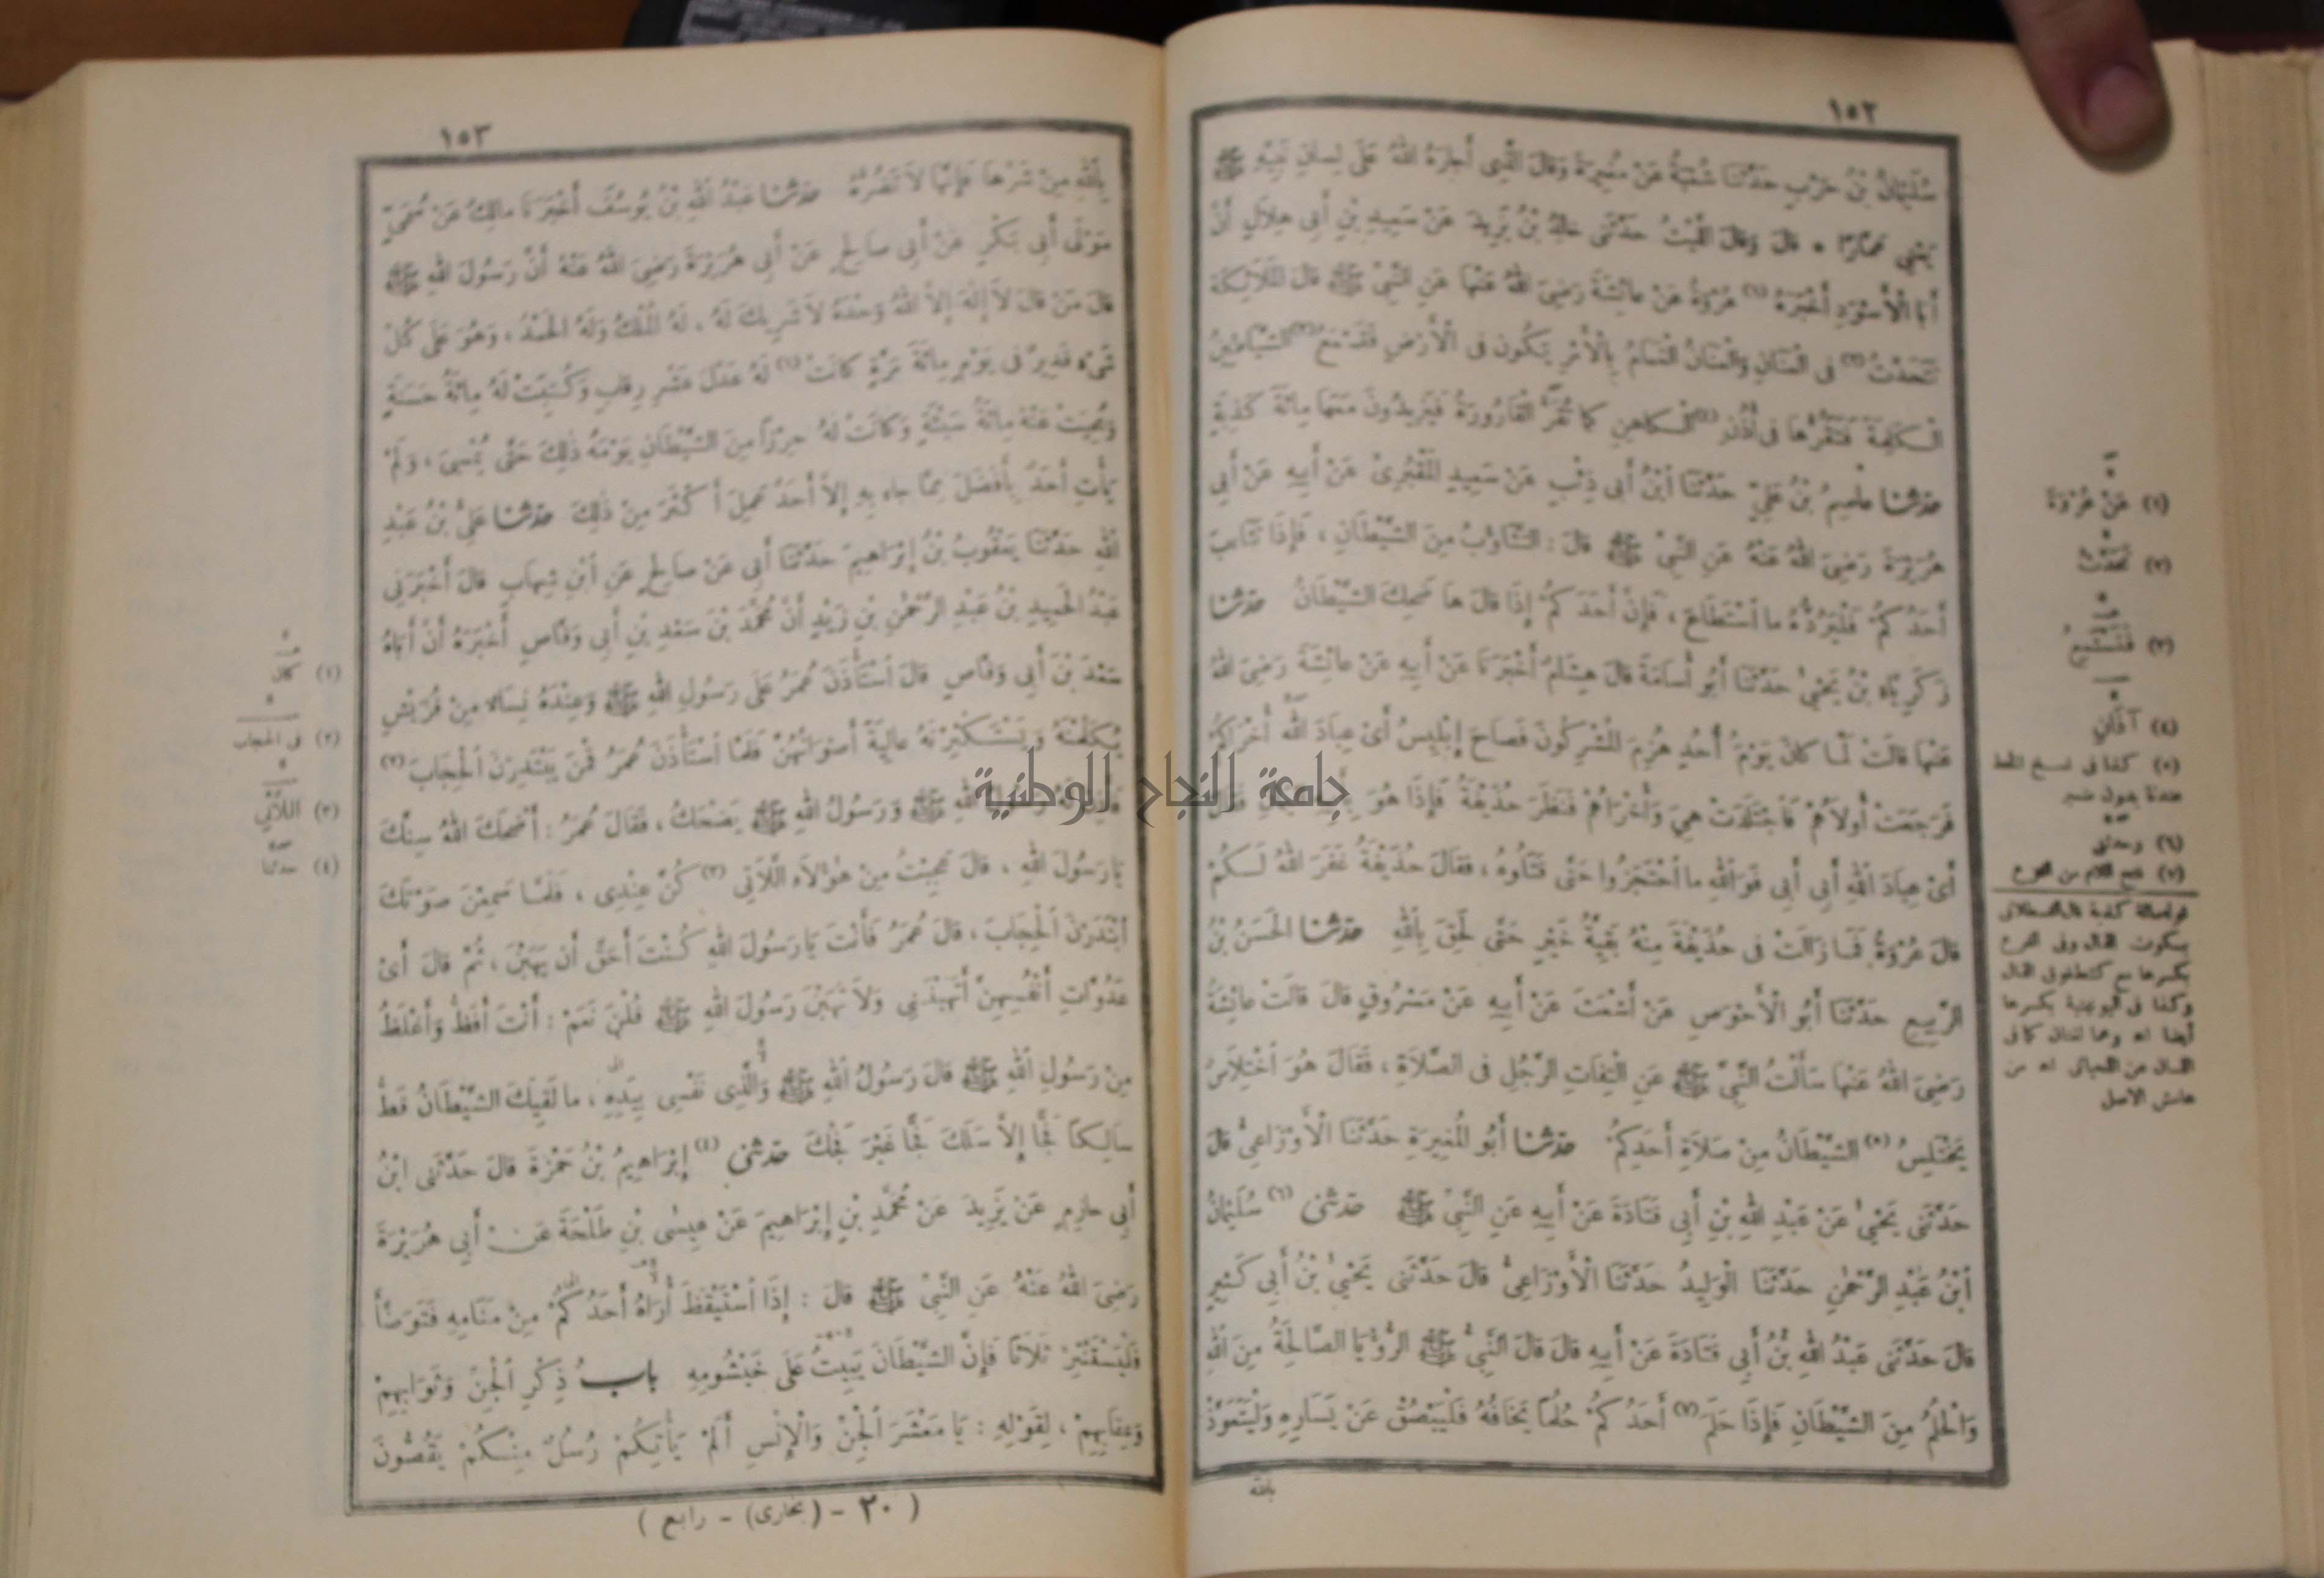 ١٥٢
سُلَيْمَانُ بْنُ حَرْبٍ حَدَّثَنَا شُعْبَةُ عَنْ مُغِيرَةَ وَقَالَ الَّذِى أَجَارَهُ اللهُ عَلَى لِسَانِ نَبِيِّهِ ﷺ
يَعْنِى عَمَّارًا * قَالَ وَقَالَ اللَّيْثُ حَدَّثَنِى خَالِدُ بْنُ يَزِيدَ عَنْ سَعِيدِ بْنِ أَبِى هِلَالٍ أَنَّ
أَبَا الْأَسْوَدِ أَخْبَرَهُ (١) عُرْوَةُ عَنْ عَائِشَةَ رَضِىَ اللهُ عَنْهَا عَنِ النَّبِىِّ ﷺ قَالَ الْمَلَائِكَةُ
تَتَحَدَّثُ (٢) فِى الْعَنَانِ وَالْعَنَانُ الْغَمَامُ بِالْأَمْرِ يَكُونُ فِى الْأَرْضِ فَتَسْمَعُ (٣) الشَّيَاطِينُ
الْكَلِمَةَ فَتَقُرُّهَا فِى أُذُنِ (٤) الْكَاهِنِ كَمَا تُقَرُّ الْقَارُورَةُ فَيَزِيدُونَ مَعَهَا مِائَةَ كَذْبَةٍ
حَدَّثَنَا عَاصِمُ بْنُ عَلِىٍّ حَدَّثَنَا ابْنُ أَبِى ذِئْبٍ عَنْ سَعِيدٍ الْمَقْبُرِىِّ عَنْ أَبِيهِ عَنْ أَبِى
هُرَيْرَةَ رَضِىَ اللهُ عَنْهُ عَنِ النَّبِىِّ ﷺ قَالَ : التَّثَاؤُبُ مِنَ الشَّيْطَانِ ، فَإِذَا تَثَاءَبَ
أَحَدُكُمْ فَلْيَرُدَّهُ مَا اسْتَطَاعَ ، فَإِنَّ أَحَدَكُمْ إِذَا قَالَ هَا ضَحِكَ الشَّيْطَانُ حَدَّثَنَا
زَكَرِيَّاءُ بْنُ يَحْيَى حَدَّثَنَا أَبُو أُسَامَةَ قَالَ هِشَامٌ أَخْبَرَنَا عَنْ أَبِيهِ عَنْ عَائِشَةَ رَضِىَ اللهُ
عَنْهَا قَالَتْ لَمَّا كَانَ يَوْمُ أُحُدٍ هُزِمَ الْمُشْرِكُونَ فَصَاحَ إِبْلِيسُ أَىْ عِبَادَ اللهِ أُخْرَاكُمْ
فَرَجَعَتْ أُولَاهُمْ فَاجْتَلَدَتْ هِىَ وَأُخْرَاهُمْ فَنَظَرَ حُذَيْفَةُ فَإِذَا هُوَ
أَىْ عِبَادَ اللهِ أَبِى أَبِى فَوَاللهِ مَا احْتَجَزُوا حَتَّى قَتَلُوهُ ، فَقَالَ حُذَيْفَةُ غَفَرَ اللهُ لَكُمْ
قَالَ عُرْوَةُ فَمَا زَالَتْ فِى حُذَيْفَةَ مِنْهُ بَقِيَّةُ خَيْرٍ حَتَّى لَحِقَ بِاللهِ حَدَّثَنَا الْحَسَنُ بْنُ
الرَّبِيعِ حَدَّثَنَا أَبُو الْأَحْوَصِ عَنْ أَشْعَثَ عَنْ أَبِيهِ عَنْ مَسْرُوقٍ قَالَ قَالَتْ عَائِشَةُ
رَضِىَ اللهُ عَنْهَا سَأَلْتُ النَّبِىَّ ﷺ عَنِ الْتِفَاتِ الرَّجُلِ فِى الصَّلَاةِ ، فَقَالَ هُوَ اخْتِلَاسٌ
يَخْتَلِسُ (٥) الشَّيْطَانُ مِنْ صَلَاةِ أَحَدِكُمْ حَدَّثَنَا أَبُو الْمُغِيرَةِ حَدَّثَنَا الْأَوْزَاعِىُّ قَالَ
حَدَّثَنِى يَحْيَى عَنْ عَبْدِ اللهِ بْنِ أَبِى قَتَادَةَ عَنْ أَبِيهِ عَنِ النَّبِىِّ ﷺ حَدَّثَنِى (٦) سُلَيْمَانُ
ابْنُ عَبْدِ الرَّحْمٰنِ حَدَّثَنَا الْوَلِيدُ حَدَّثَنَا الْأَوْزَاعِىُّ قَالَ حَدَّثَنِى يَحْيَى بْنُ أَبِى كَثِيرٍ
قَالَ حَدَّثَنِى عَبْدُ اللهِ بْنُ أَبِى قَتَادَةَ عَنْ أَبِيهِ قَالَ قَالَ النَّبِىُّ ﷺ الرُّؤْيَا الصَّالِحَةُ مِنَ اللهِ
وَالْحُلْمُ مِنَ الشَّيْطَانِ فَإِذَا حَلَمَ (٧) أَحَدُكُمْ حُلْمًا يَخَافُهُ فَلْيَبْصُقْ عَنْ يَسَارِهِ وَلْيَتَعَوَّذْ
بالله
(١) عَنْ عُرْوَةَ
(٢) تَحَدَّثُ
(٣) فَتَسْتَمِعُ
(٤) آذَانِ
(٥) كذا فى نسخ الخط
عندنا بدون ضمير
(٦) وحدثنى
(٧) فتح اللام من الفرع
بسكون الذال وفى الفرع
وكذا فى اليونينية بكسرها
هامش الاصل
١٥٣
بِاللهِ مِنْ شَرِّهَا فَإِنَّهَا لَا تَضُرُّهُ حَدَّثَنَا عَبْدُ اللهِ بْنُ يُوسُفَ أَخْبَرَنَا مَالِكٌ عَنْ سُمَىٍّ
مَوْلَى أَبِى بَكْرٍ عَنْ أَبِى صَالِحٍ عَنْ أَبِى هُرَيْرَةَ رَضِىَ اللهُ عَنْهُ أَنَّ رَسُولَ اللهِ ﷺ
قَالَ مَنْ قَالَ لَا إِلٰهَ إِلَّا اللهُ وَحْدَهُ لَا شَرِيكَ لَهُ ، لَهُ الْمُلْكُ وَلَهُ الْحَمْدُ ، وَهُوَ عَلَى كُلِّ
شَىْءٍ قَدِيرٌ فِى يَوْمٍ مِائَةَ مَرَّةٍ كَانَتْ (١) لَهُ عَدْلَ عَشْرِ رِقَابٍ وَكُتِبَتْ لَهُ مِائَةُ حَسَنَةٍ
وَمُحِيَتْ عَنْهُ مِائَةُ سَيِّئَةٍ وَكَانَتْ لَهُ حِرْزًا مِنَ الشَّيْطَانِ يَوْمَهُ ذٰلِكَ حَتَّى يُمْسِىَ ، وَلَمْ
يَأْتِ أَحَدٌ بِأَفْضَلَ مِمَّا جَاءَ بِهِ إِلَّا أَحَدٌ عَمِلَ أَكْثَرَ مِنْ ذٰلِكَ حَدَّثَنَا عَلِىُّ بْنُ عَبْدِ
اللهِ حَدَّثَنَا يَعْقُوبُ بْنُ إِبْرَاهِيمَ حَدَّثَنَا أَبِى عَنْ صَالِحٍ عَنِ ابْنِ شِهَابٍ قَالَ أَخْبَرَنِى
عَبْدُ الْحَمِيدِ بْنُ عَبْدِ الرَّحْمٰنِ بْنِ زَيْدٍ أَنَّ مُحَمَّدَ بْنَ سَعْدِ بْنِ أَبِى وَقَّاصٍ أَخْبَرَهُ أَنَّ أَبَاهُ
سَعْدَ بْنَ أَبِى وَقَّاصٍ قَالَ اسْتَأْذَنَ عُمَرُ عَلَى رَسُولِ اللهِ ﷺ وَعِنْدَهُ نِسَاءٌ مِنْ قُرَيْشٍ
يُكَلِّمْنَهُ وَيَسْتَكْثِرْنَهُ عَالِيَةً أَصْوَاتُهُنَّ فَلَمَّا اسْتَأْذَنَ عُمَرُ قُمْنَ يَبْتَدِرْنَ الْحِجَابَ (٢)
اللهِ ﷺ وَرَسُولُ اللهِ ﷺ يَضْحَكُ ، فَقَالَ عُمَرُ : أَضْحَكَ اللهُ سِنَّكَ
يَا رَسُولَ اللهِ ، قَالَ عَجِبْتُ مِنْ هٰؤُلَاءِ اللَّاتِى (٣) كُنَّ عِنْدِى ، فَلَمَّا سَمِعْنَ صَوْتَكَ
ابْتَدَرْنَ الْحِجَابَ ، قَالَ عُمَرُ فَأَنْتَ يَا رَسُولَ اللهِ كُنْتَ أَحَقَّ أَنْ يَهَبْنَ ، ثُمَّ قَالَ أَىْ
عَدُوَّاتِ أَنْفُسِهِنَّ أَتَهَبْنَنِى وَلَا تَهَبْنَ رَسُولَ اللهِ ﷺ قُلْنَ نَعَمْ : أَنْتَ أَفَظُّ وَأَغْلَظُ
مِنْ رَسُولِ اللهِ ﷺ قَالَ رَسُولُ اللهِ ﷺ وَالَّذِى نَفْسِى بِيَدِهِ ، مَا لَقِيَكَ الشَّيْطَانُ قَطُّ
سَالِكًا فَجًّا إِلَّا سَلَكَ فَجًّا غَيْرَ فَجِّكَ حَدَّثَنِى (٤) إِبْرَاهِيمُ بْنُ حَمْزَةَ قَالَ حَدَّثَنِى ابْنُ
أَبِى حَازِمٍ عَنْ يَزِيدَ عَنْ مُحَمَّدِ بْنِ إِبْرَاهِيمَ عَنْ عِيسَى بْنِ طَلْحَةَ عَنْ أَبِى هُرَيْرَةَ
رَضِىَ اللهُ عَنْهُ عَنِ النَّبِىِّ ﷺ قَالَ : إِذَا اسْتَيْقَظَ أُرَاهُ أَحَدُكُمْ مِنْ مَنَامِهِ فَتَوَضَّأَ
فَلْيَسْتَنْثِرْ ثَلَاثًا فَإِنَّ الشَّيْطَانَ يَبِيتُ عَلَى خَيْشُومِهِ بَابُ ذِكْرِ الْجِنِّ وَثَوَابِهِمْ
وَعِقَابِهِمْ ، لِقَوْلِهِ : يَا مَعْشَرَ الْجِنِّ وَالْإِنْسِ أَلَمْ يَأْتِكُمْ رُسُلٌ مِنْكُمْ يَقُصُّونَ
(١) كان
(٢) فى الحجاب
(٣) اللَّائِى
(٤) حدثنا
( ٢٠ - (بخارى) - رابع )
جامعة النجاح الوطنية